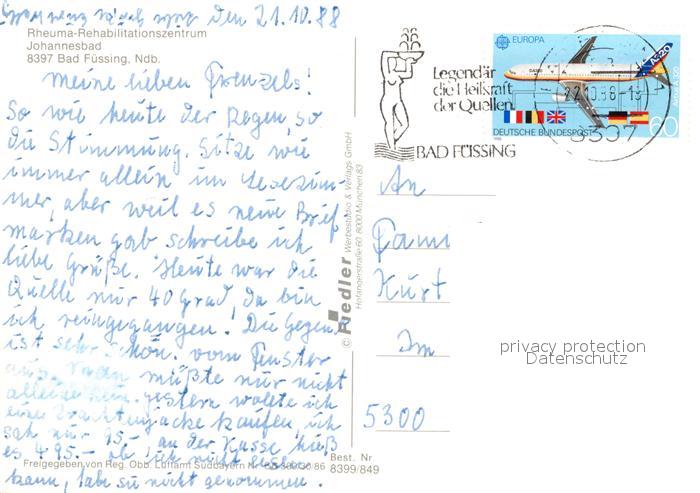 den 21.10.88
Rheuma-Rehabilitationszentrum
Johannesbad
8397 Bad Füssing, Ndb.
Meine lieben Frenzels!
So wie heute der Regen, so
die Stimmung. Sitze wie
immer allein im Lesezim-
mer, aber weil es neue Brief
marken gab schreibe ich
liebe Grüße. Heute war die
Quelle nur 40 Grad, da bin
ich reingegangen! Die Gegend
ist sehr schön. vom Fenster
aus, man müßte nur nicht
alleine sein. gestern wollte ich
eine Trachtenjacke kaufen, ich
sah nur 95,- an der Kasse hieß
es 495.-
kann, habe sie nicht genommen.
Freigegeben von Reg. Obb. Luftamt Südbayern Nr.
Best. Nr.
8399/849
© Fiedler Werbestudio & Verlags GmbH
8000 München 83
Legendär
die Heilkraft
der Quellen
BAD FÜSSING
EUROPA
A320
Airbus A320
22.10.88-13
8397
60
DEUTSCHE BUNDESPOST
An
Fami
Kurt
Im
5300
privacy protection
Datenschutz